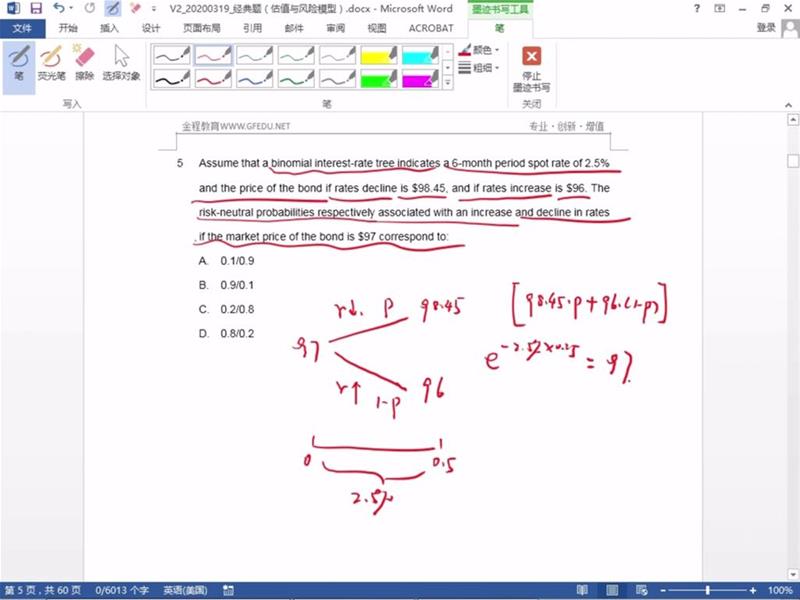 V2_20200319_经典题（估值与风险模型）.docx - Microsoft Word
墨迹书写工具
文件 开始 插入 设计 页面布局 引用 邮件 审阅 视图 ACROBAT 笔 登录
笔 荧光笔 擦除 选择对象 颜色 粗细 停止墨迹书写
写入 笔 关闭
金程教育WWW.GFEDU.NET 专业·创新·增值
5 Assume that a binomial interest-rate tree indicates a 6-month period spot rate of 2.5%
and the price of the bond if rates decline is $98.45, and if rates increase is $96. The
risk-neutral probabilities respectively associated with an increase and decline in rates
if the market price of the bond is $97 correspond to:
A. 0.1/0.9
B. 0.9/0.1
C. 0.2/0.8
D. 0.8/0.2
r↓. P 98.45 [98.45·P+96·(1-P)]
97 e^-2.5%×0.25 = 97.
r↑ 1-P 96
0 0.5
2.5%
第 5 页，共 60 页 0/6013 个字 英语(美国) 100%